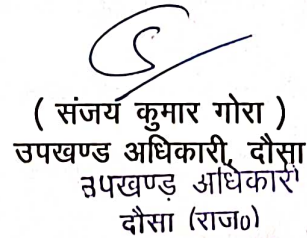 ( संजय कुमार गोरा )
उपखण्ड अधिकारी, दौसा
उपखण्ड़ अधिकारी
दौसा (राज०)